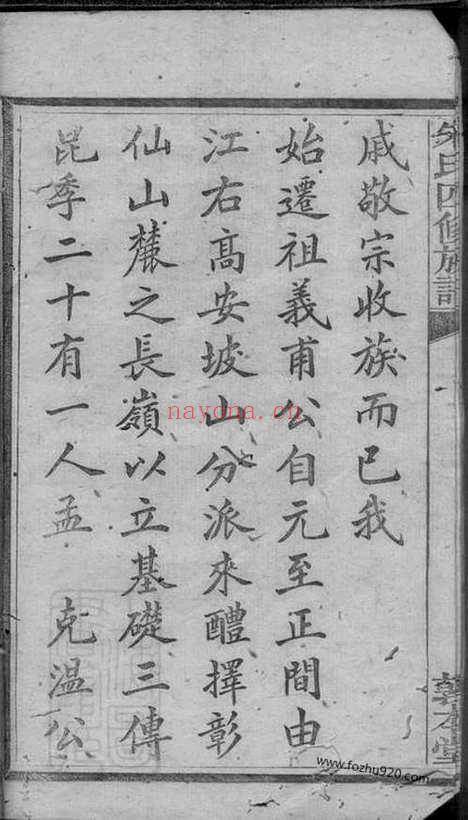 氏四修族譜
敦本堂
戚敬宗收族而已我
始遷祖義甫公自元至正間由
江右高安坡山分派來醴擇彰
仙山麓之長嶺以立基礎三傳
昆季二十有一人孟　克溫公
nayona.cn
www.fozhu920.com